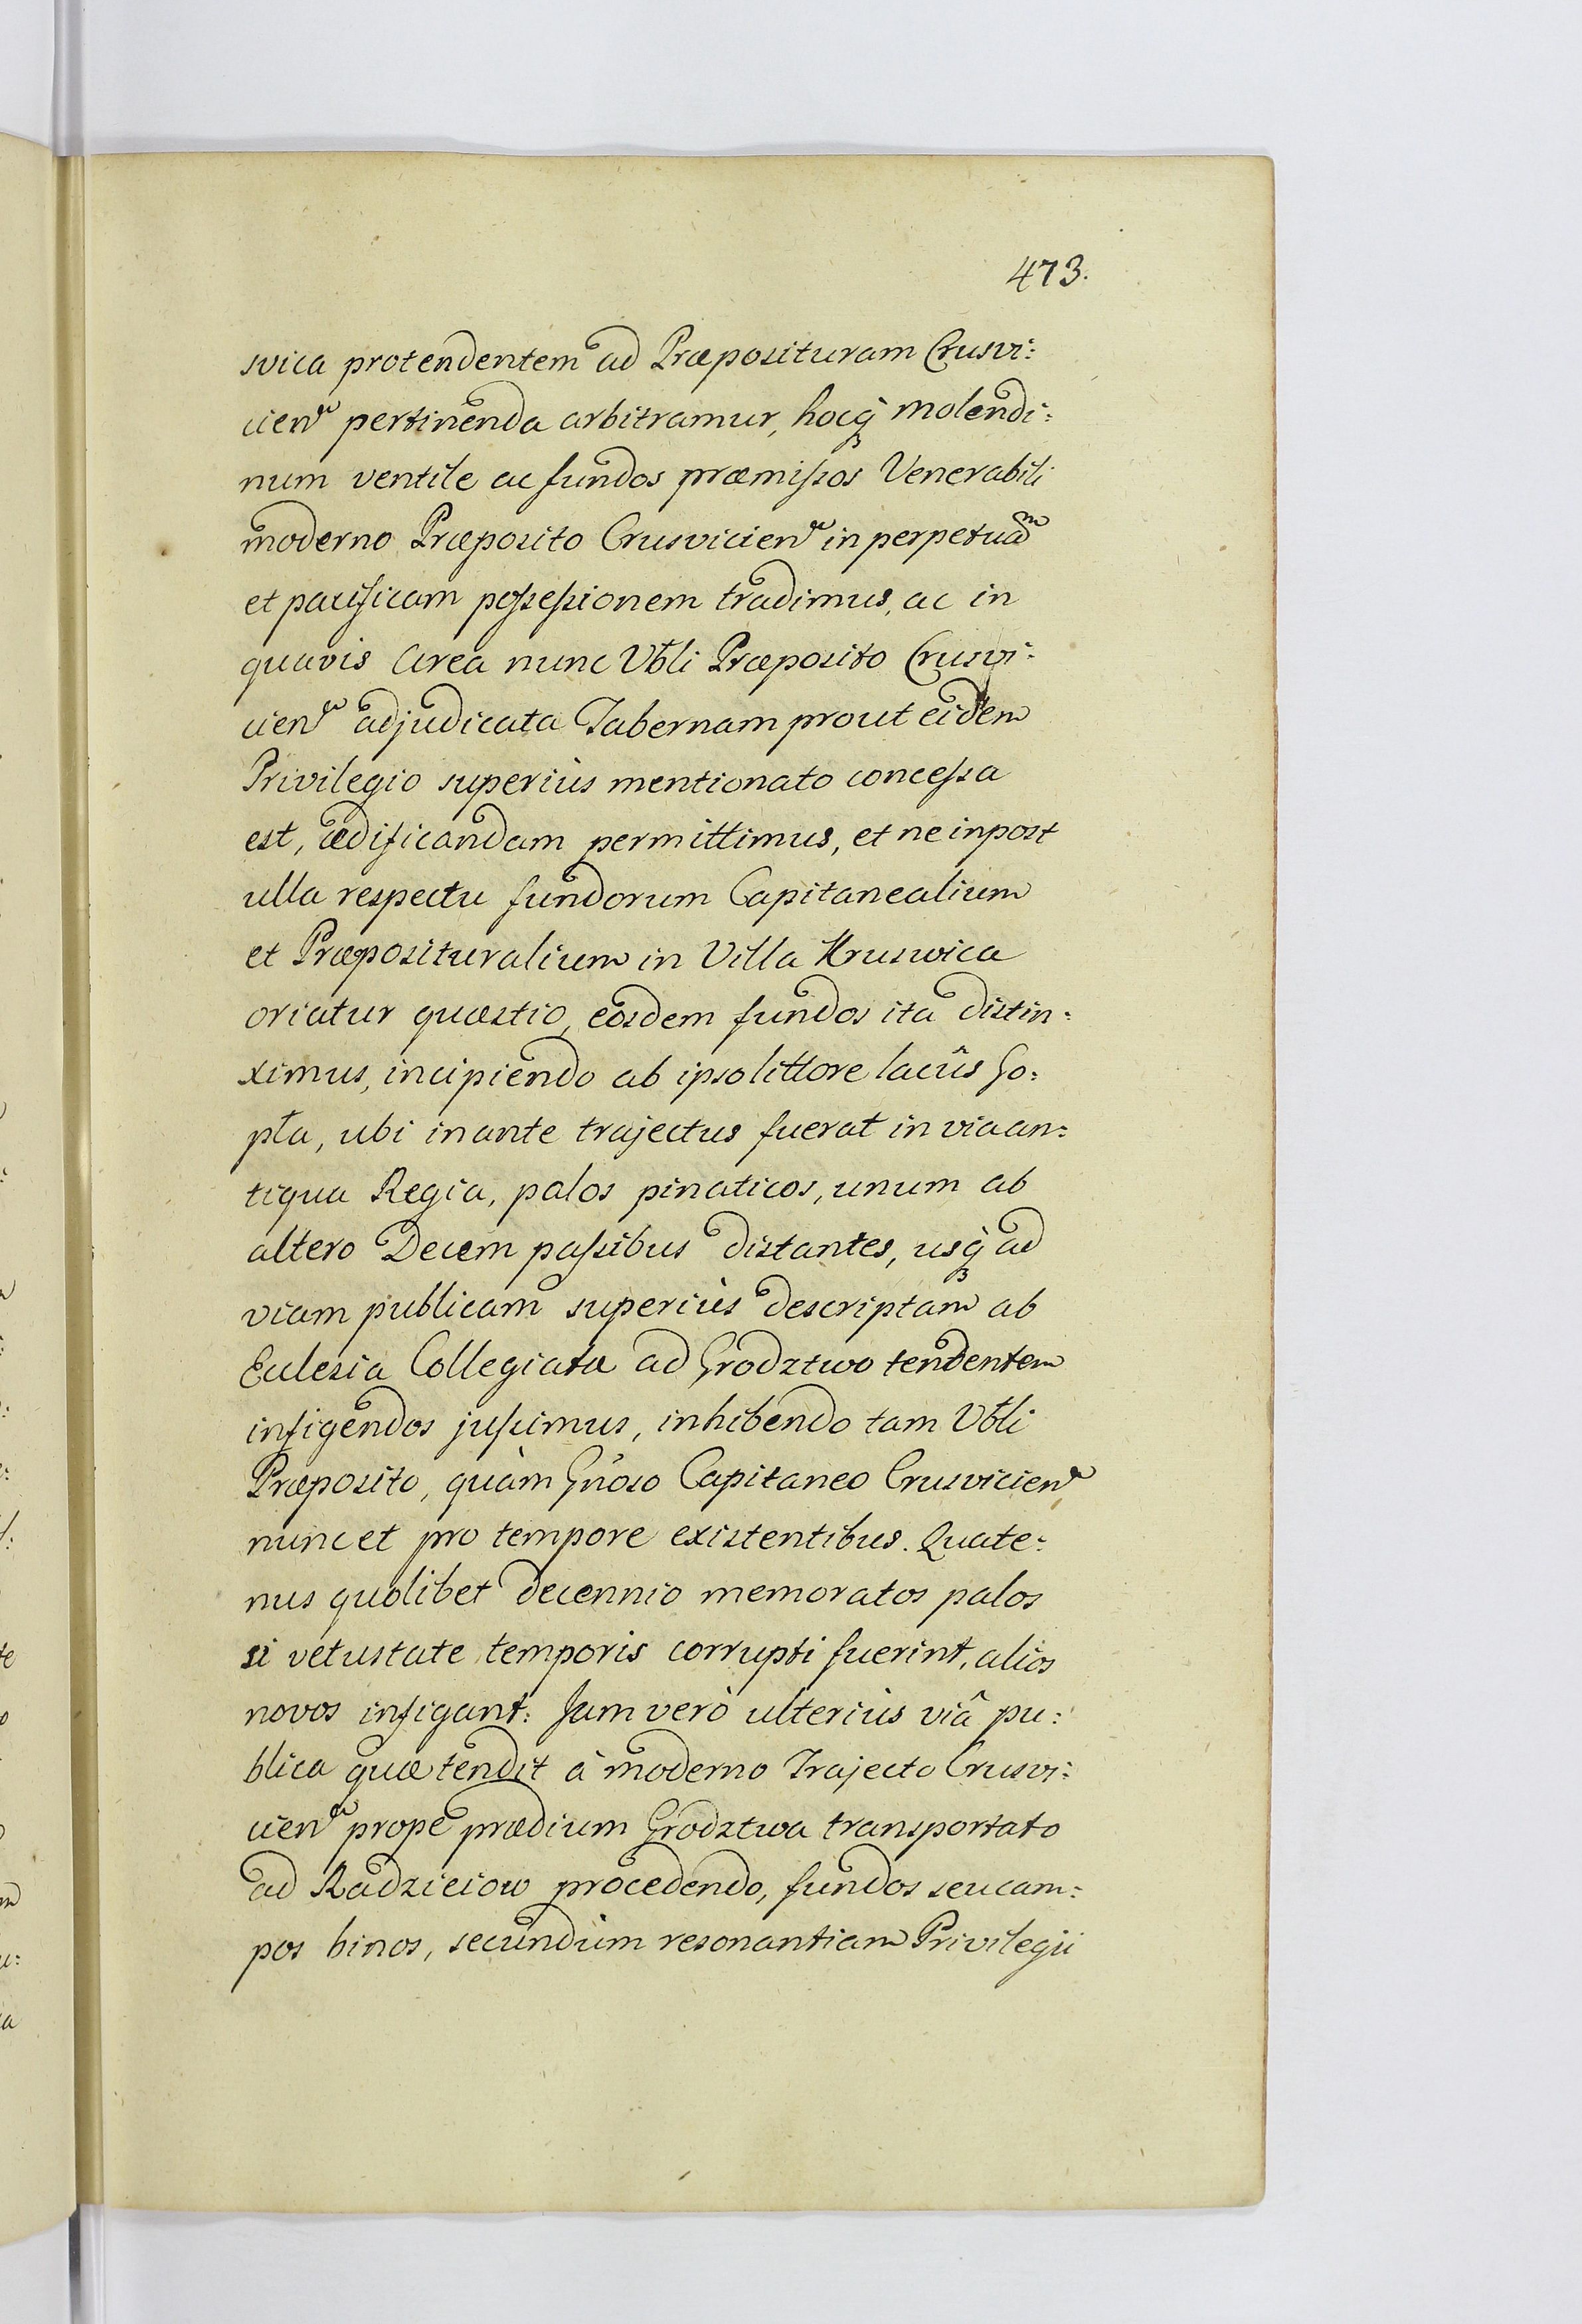 473.
svica protendentem ad Præposituram Crusvi:
cien pertinenda arbitramur, hocq molendi:
num ventile ac fundos præmissos Venerabili
moderno Præposito Crusvicien in perpetuam
et pacificam possessionem tradimus, ac in
quavis Area nunc Vbli Præposito Crusvi:
cien adjudicata Tabernam prout eidem
Privilegio superiùs mentionato concessa
est, ædificandam permittimus, et ne inpost
ulla respectu fundorum Capitanealium
et Præposituralium in Villa Kruswica
oriatur quæstio, eosdem fundos ita distin:
ximus, incipiendo ab ipso littore lacûs Go:
pła, ubi inante trajectus fuerat in via an:
tiqua Regia, palos pinaticos, unum ab
altero Decem passibus distantes, usq ad
viam publicam superiùs descriptam ab
Eclesia Collegiata ad Grodztwo tendentem
infigendos jussimus, inhibendo tam Vbli
Præposito, quàm Gnoso Capitaneo Crusvicien
nunc et pro tempore existentibus. Quate:
nus quolibet decennio memoratos palos
si vetustate temporis corrupti fuerint, alios
novos infigant: Jam verò ulteriùs viâ pu:
blica quæ tendit à moderno Trajecto Crusvi:
cien prope prædium Grodztwa transportato
ad Radzieiow procedendo, fundos seu cam:
pos binos, secundùm resonantiam Privilegii